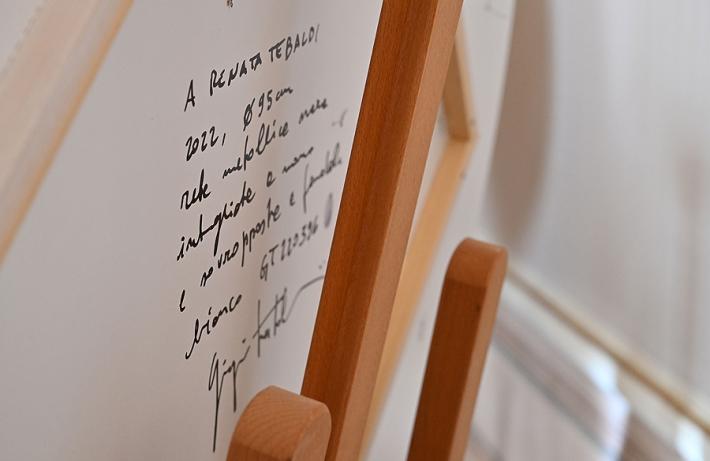 A RENATA TEBALDI
2022, Ø 95cm
rete metallica nera
intagliate a mano
e sovrapposte e fondale
bianco GT220396